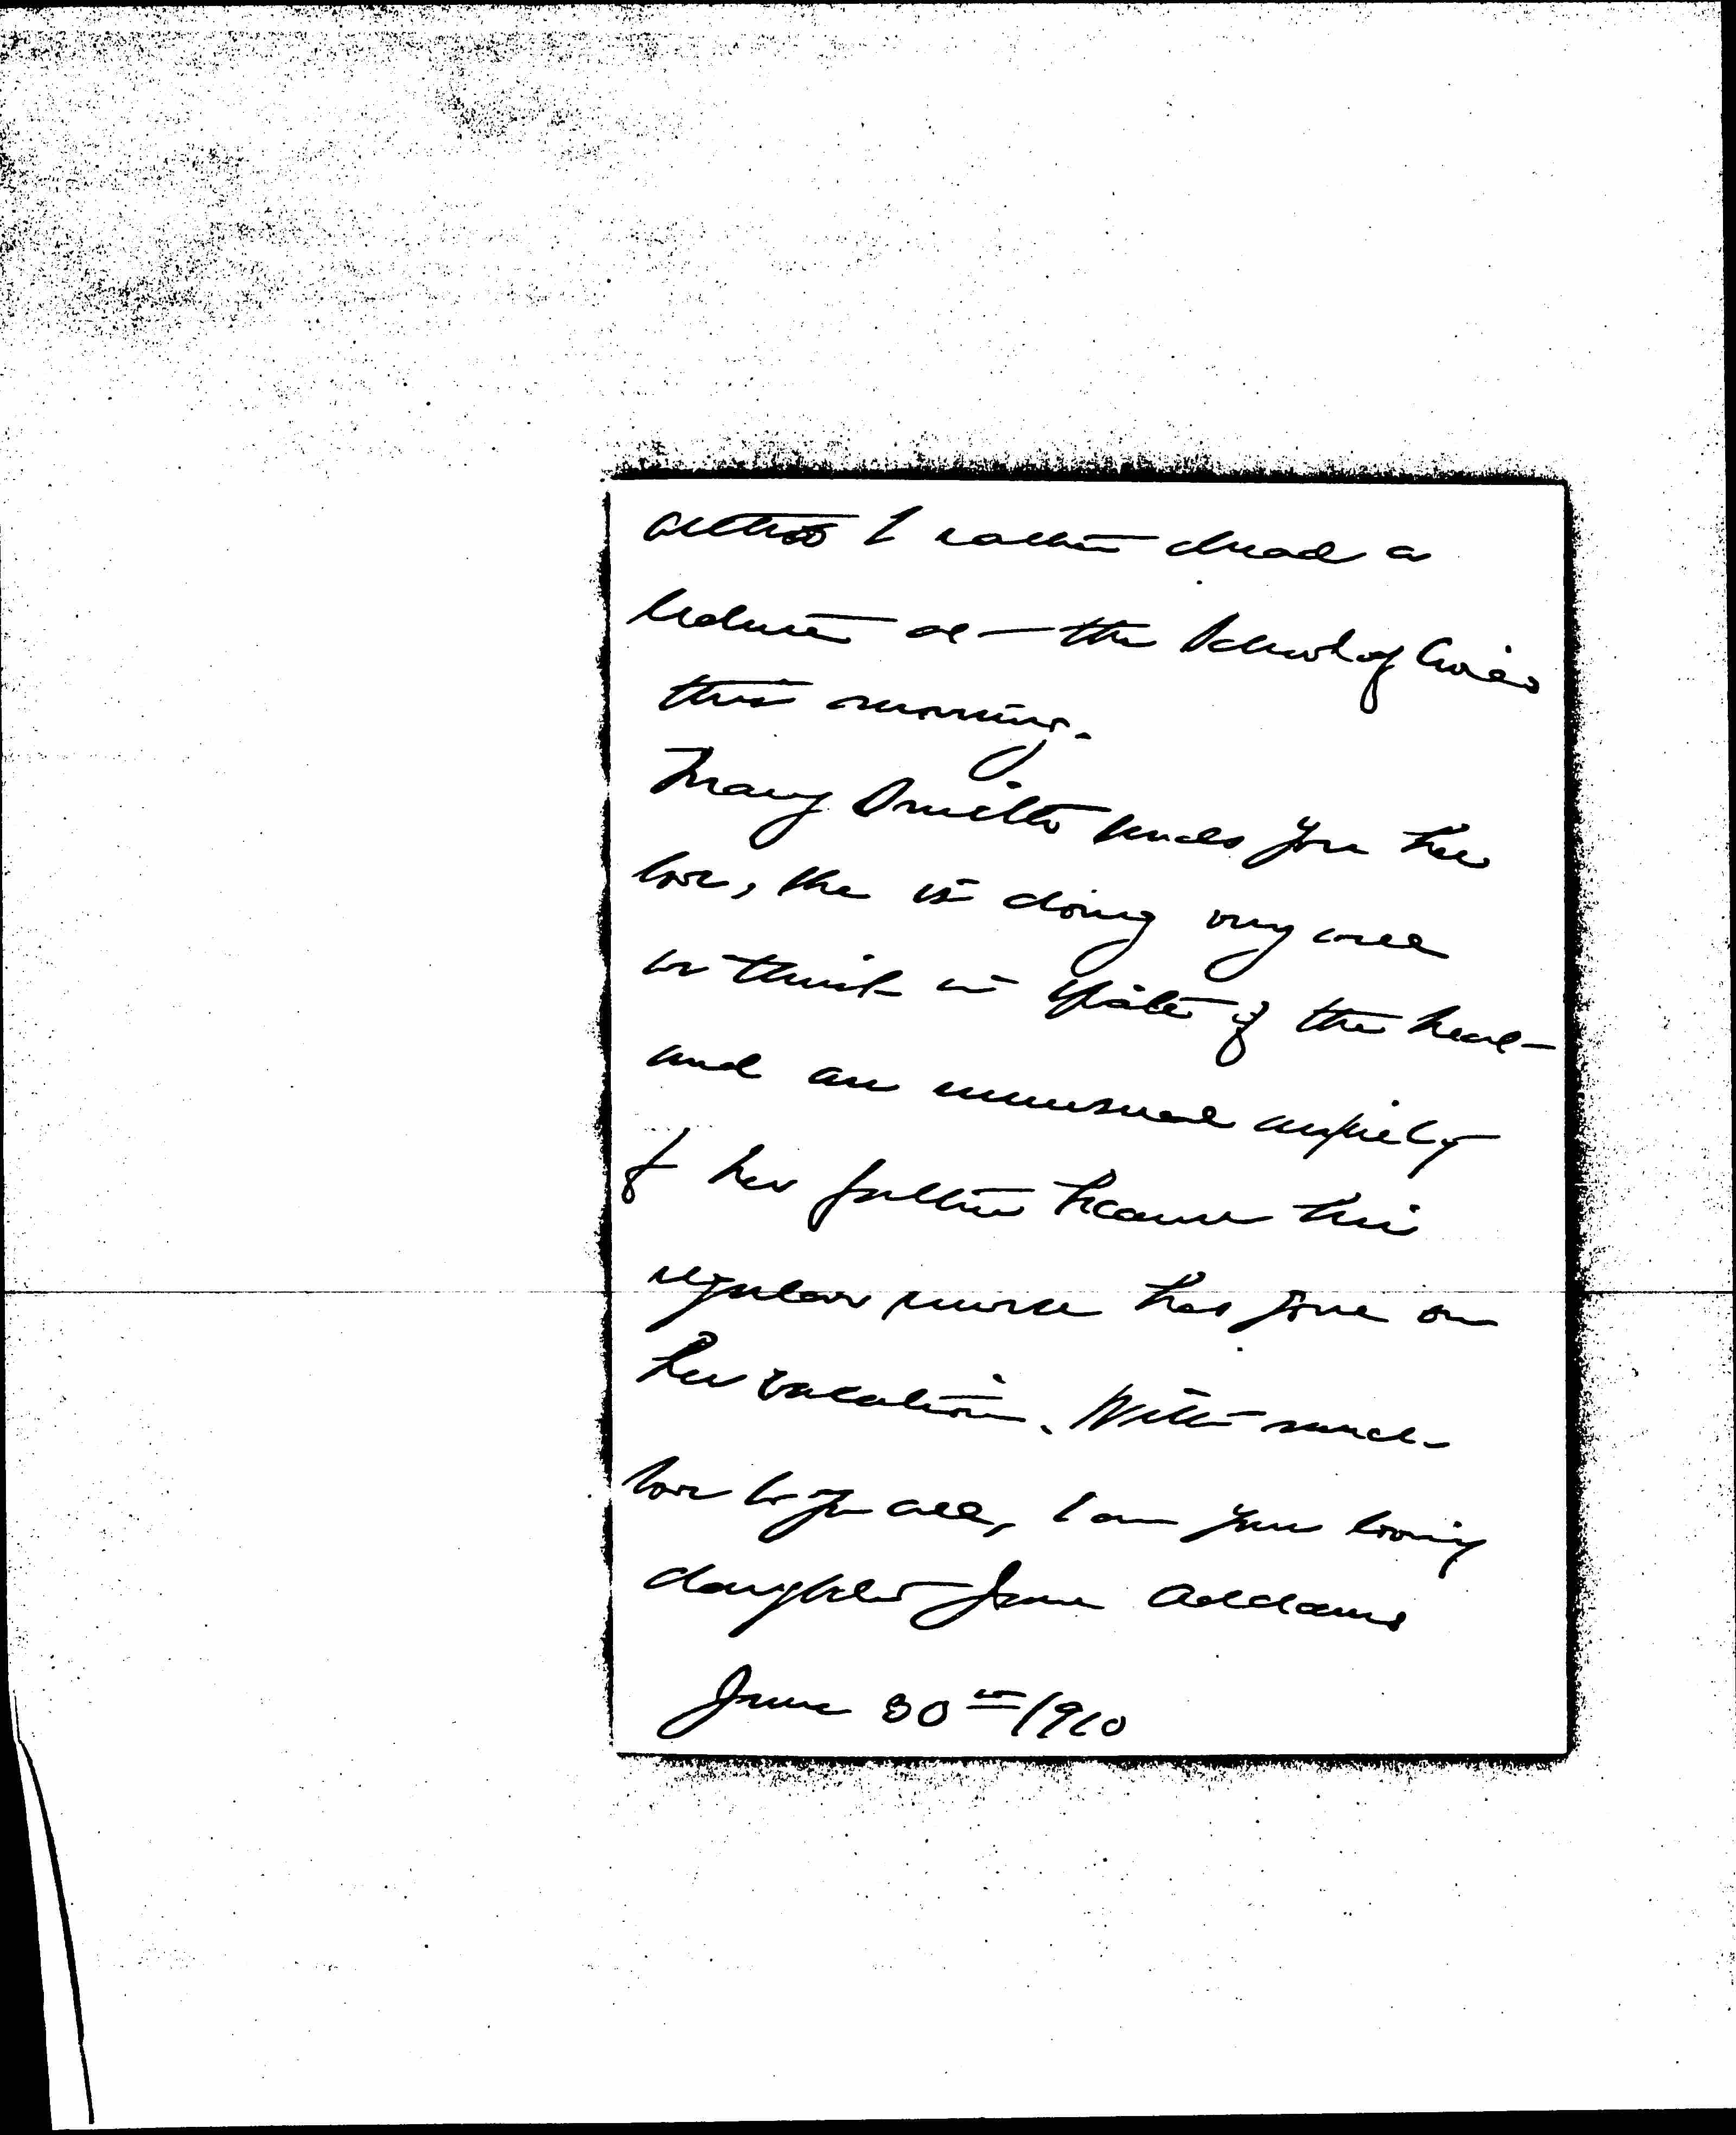 altho I rather dread a
lecture at the School of Civics
this morning.
Mary Smith sends you her
love, she is doing very well
we think in spite of the heat
and an unusual anxiety
of her father because his
regular nurse has gone on
her vacation. With much
love to you all, I am your loving
daughter Jane Addams
June 30th/1910